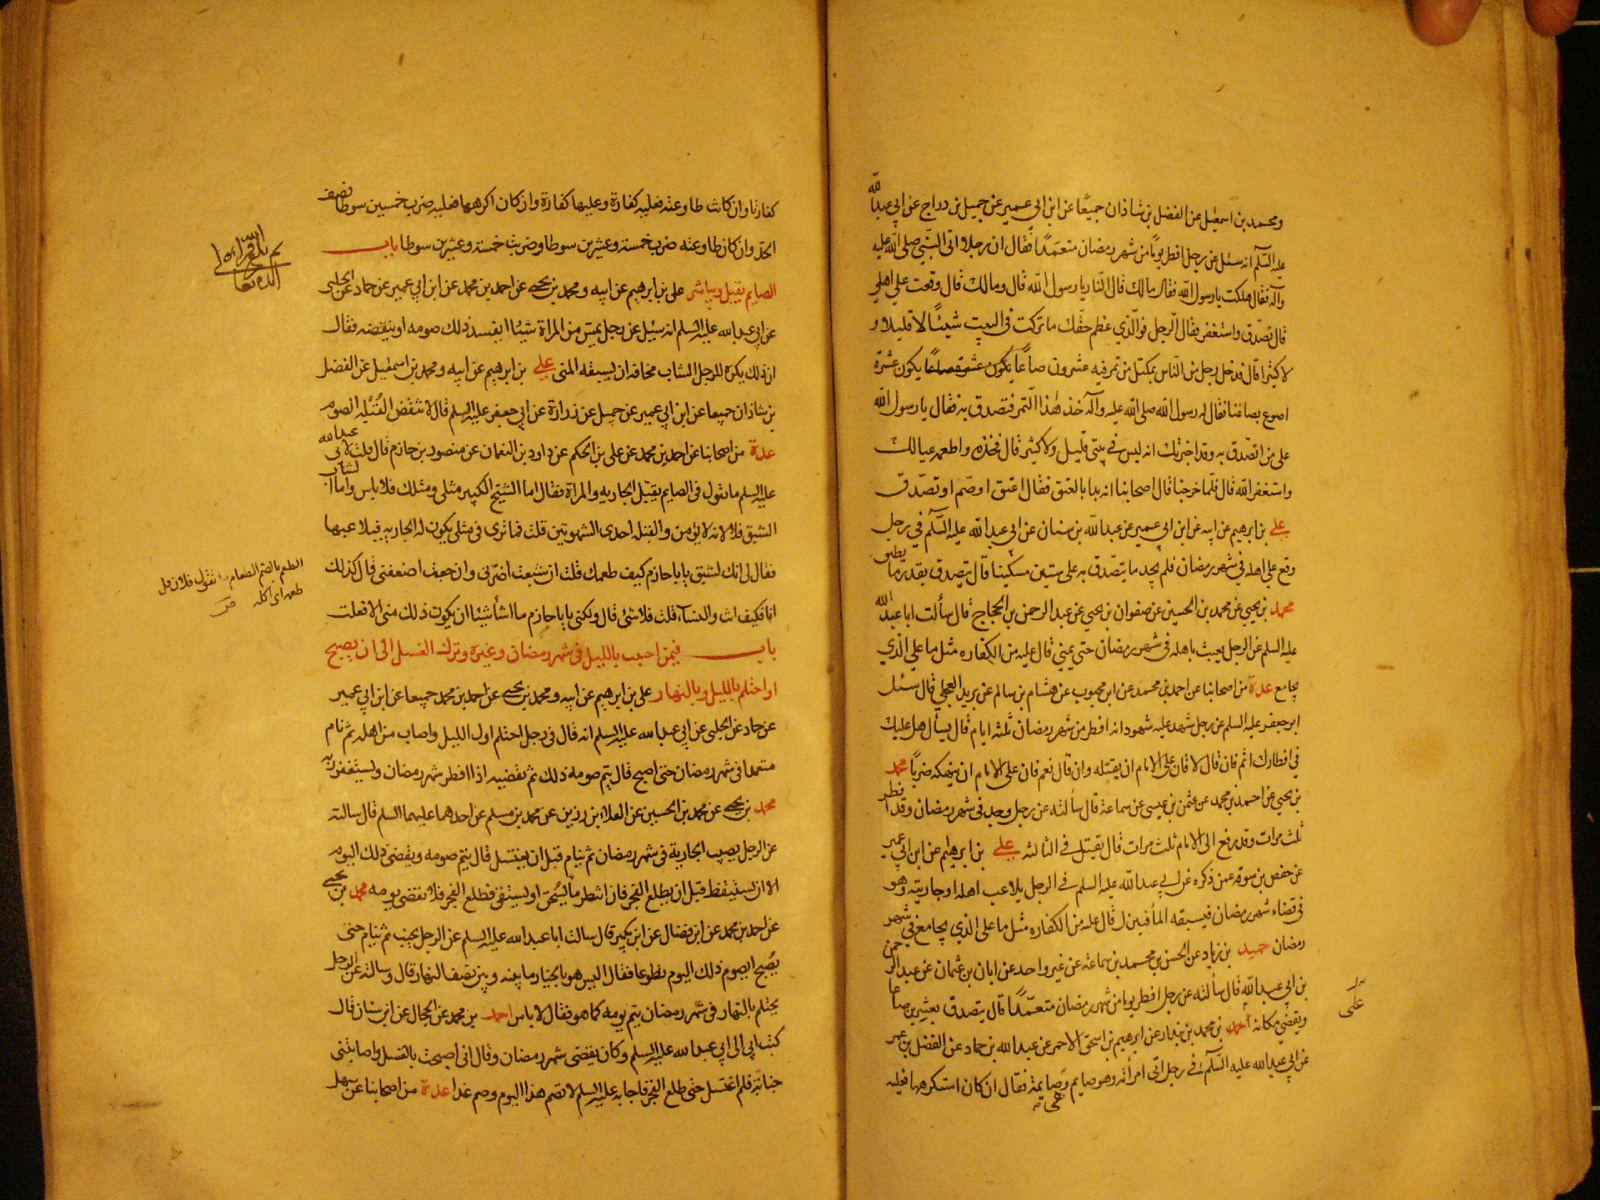 ومحمد بن اسمعيل عن الفضل بن شاذان جميعا عن ابن ابي عمير عن جميل بن دراج عن ابي عبد الله
عليه السلام انه سئل عن رجل افطر يوما من شهر رمضان متعمدا فقال ان رجلا اتى النبي صلى الله عليه
وآله فقال هلكت يا رسول الله فقال مالك قال النار يا رسول الله قال ومالك قال وقعت على اهلي
قال تصدق واستغفر فقال الرجل فوالذي عظم حقك ما تركت في البيت شيئا لا قليلا و
لا كثيرا قال فدخل رجل من الناس بمكتل من تمر فيه عشرون صاعا يكون عشرة
اصوع بصاعنا فقال له رسول الله صلى الله عليه وآله خذ هذا التمر فتصدق به فقال يا رسول الله
على من اتصدق به وقد اخبرتك انه ليس في بيتي قليل ولا كثير قال فخذه واطعمه عيالك
واستغفر الله قال فلما خرجنا قال اصحابنا انه بدا بالعتق فقال اعتق او صم او تصدق
علي بن ابرهيم عن ابيه عن ابن ابي عمير عن عبد الله بن سنان عن ابي عبد الله عليه السلام في رجل
وقع على اهله في شهر رمضان فلم يجد ما يتصدق به على ستين مسكينا قال يتصدق بقدر ما يطيق
محمد بن يحيى عن محمد بن الحسين عن صفوان بن يحيى عن عبد الرحمن بن الحجاج قال سألت ابا عبد الله
عليه السلم عن الرجل يعبث باهله في شهر رمضان حتى يمني قال عليه من الكفاره مثل ما على الذي
يجامع عدة من اصحابنا عن احمد بن محمد عن ابن محبوب عن هشام بن سالم عن بريد العجلي قال سئل
ابو جعفر عليه السلم عن رجل شهد عليه شهود انه افطر من شهر رمضان ثلثه ايام قال يسأل هل عليك
في افطارك اثم فان قال لا فان على الامام ان يقتله وان قال نعم فان على الامام ان ينهكه ضربا محمد
بن يحيى عن احمد بن محمد عن عثمن بن عيسى عن سماعة قال سألته عن رجل وجد في شهر رمضان وقد افطر
ثلث مرات وقد رفع الى الامام ثلث مرات قال يقتل في الثالثه علي بن ابرهيم عن ابن ابي عمير
عن حفص بن سوقه عمن ذكره عن ابي عبد الله عليه السلم في الرجل يلاعب اهله او جاريته وهو
في قضاء شهر رمضان فيسبقه الماء فينزل قال عليه من الكفاره مثل ما على الذي يجامع في شهر
رمضان حميد بن زياد عن الحسن بن محمد بن سماعة عن غير واحد عن ابان بن عثمان عن عبد الرحمن
بن ابي عبد الله قال سألته عن رجل افطر يوما من شهر رمضان متعمدا قال يتصدق بعشرين صاعا
ويقضي مكانه احمد بن محمد بن بندار عن ابرهيم بن اسحق الاحمر عن عبد الله بن حماد عن الفضل بن عمر
عن ابي عبد الله عليه السلام في رجل اتى امراته وهو صايم وصايمة فقال ان كان استكرهها فعليه
كفارتان وان كانت طاوعته فعليه كفارة وعليها كفارة وان كان اكرهها فعليه ضرب خمسين سوطا نصف
الحد وان كان طاوعته ضرب خمسة وعشرين سوطا وضربت خمسة وعشرين سوطا باب
الصايم يقبل ويباشر علي بن ابرهيم عن ابيه ومحمد بن يحيى عن احمد بن محمد عن ابن ابي عمير عن حماد عن الحلبي
عن ابي عبد الله عليه السلم انه سئل عن رجل يمس من المراة شيئا ايفسد ذلك صومه او ينقضه فقال
ان ذلك يكره للرجل الشاب مخافة ان يسبقه المنى علي بن ابرهيم عن ابيه ومحمد بن اسمعيل عن الفضل
بن شاذان جميعا عن ابن ابي عمير عن جميل عن زرارة عن ابي جعفر عليه السلم قال لا تنقض القبله الصوم
عدة من اصحابنا عن احمد بن محمد عن علي بن الحكم عن داود بن النعمان عن منصور بن حازم قال قلت لابي عبد الله
عليه السلم ما تقول في الصايم يقبل الجاريه والمراة فقال اما الشيخ الكبير مثلي ومثلك فلا باس واما الشاب
الشبق فلا لانه لا يؤمن والقبله احدى الشهوتين قلت فما ترى في مثلي يكون له الجاريه فيلاعبها
فقال لي انك لشبق يا با حازم كيف طعمك قلت ان شبعت اضرني وان جعت اضعفني قال كذلك
انا فكيف انت والنساء قلت فلا شئ قال ولكني يا با حازم ما اشأ شيئا ان يكون ذلك مني الا فعلت
باب فيمن اجنب بالليل في شهر رمضان وغيره وترك الغسل الى ان يصبح
او احتلم بالليل وبالنهار علي بن ابرهيم عن ابيه ومحمد بن يحيى عن احمد بن محمد جميعا عن ابن ابي عمير
عن حماد عن الحلبي عن ابي عبد الله عليه السلم انه قال في رجل احتلم اول الليل واصاب من اهله ثم نام
متعمدا في شهر رمضان حتى اصبح قال يتم صومه ذلك ثم يقضيه اذا افطر شهر رمضان ويستغفر ربه
محمد بن يحيى عن محمد بن الحسين عن العلاء بن رزين عن محمد بن مسلم عن احدهما عليهما السلم قال سالته
عن الرجل يصيب الجارية في شهر رمضان ثم ينام قبل ان يغتسل قال يتم صومه ويقضي ذلك اليوم
الا ان يستيقظ قبل ان يطلع الفجر فان انتظر ما يسخن او يستقي فطلع الفجر فلا نقضي يومه محمد بن يحيى
عن احمد بن محمد عن ابن فضال عن ابن بكير قال سالت ابا عبد الله عليه السلم عن الرجل يجنب ثم ينام حتى
يصبح ايصوم ذلك اليوم تطوعا فقال اليس هو بالخيار ما بينه وبين نصف النهار قال وسالته عن الرجل
يحتلم بالنهار في شهر رمضان يتم يومه كما هو فقال لا باس احمد بن محمد عن الحجال عن ابن سنان قال
كتب ابي الى ابي عبد الله عليه السلم وكان يقضي شهر رمضان وقال اني اصبحت بالغسل واصابتني
جنابة فلم اغتسل حتى طلع الفجر فاجابه عليه السلم لا تصم هذا اليوم وصم غدا عدة من اصحابنا عن سهل
الطعم بالضم الطعام